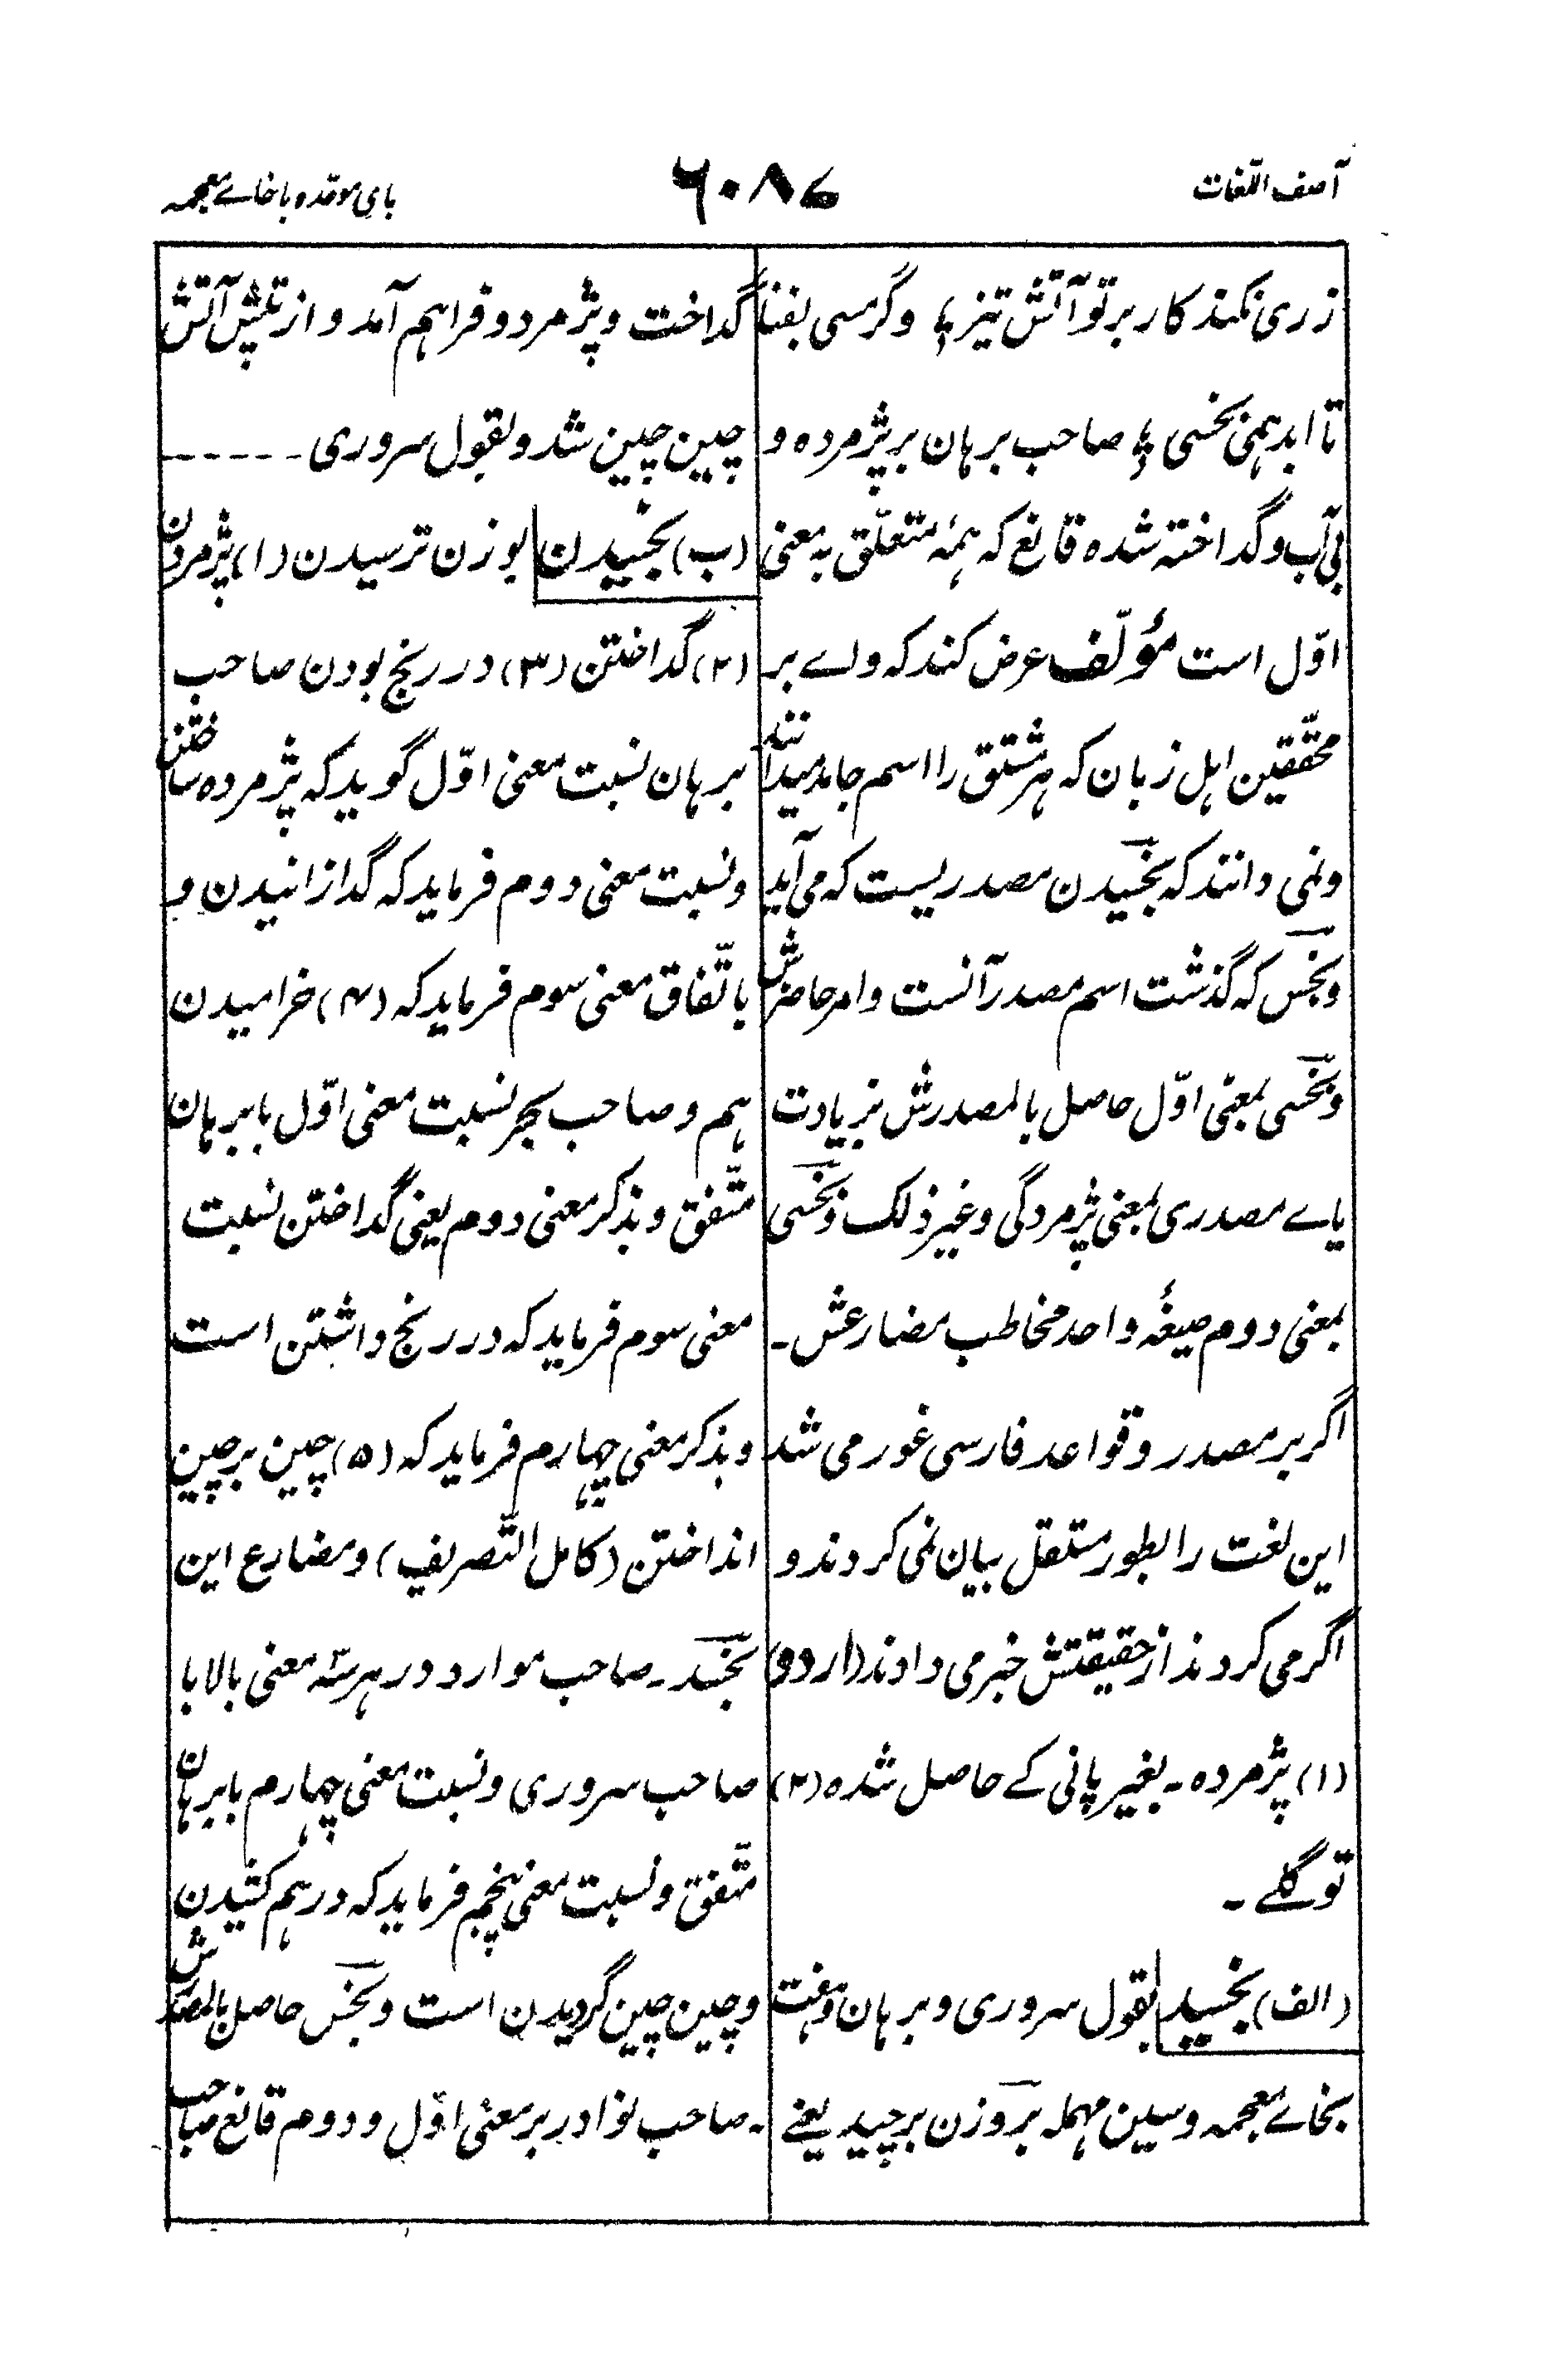 آصف اللّغات
۶۰۸۷
بای موحّده با خاے معجمہ
زری نکند کار بر تو آتش تیز ؛ وگر سی بفنا
تا ابد ہمی بخسی ؛ صاحب برہان بر پژمردہ و
بی آب و گداختہ شدہ قانع کہ ہمہ متعلّق بہ معنی
اوّل است مؤلّف عرض کند کہ واے بر
محقّقین اہل زبان کہ ہر مشتق را اسم جامد میدانند
و نمی دانند کہ بخسیدن مصدریست کہ می آید
و بخس کہ گذشت اسم مصدر آنست و امر حاضرش
و بخسی بمعنی اوّل حاصل بالمصدرش بزیادت
یاے مصدری بمعنی پژمردگی و غیر ذلک و بخسی
بمعنی دوم صیغۂ واحد مخاطب مضارعش ۔
اگر بر مصدر و قواعد فارسی غور می شد
این لغت را بطور مستقل بیان نمی کردند و
اگر می کردند از حقیقتش خبر می دادند (اردو)
(۱) پژمردہ ۔ بغیر پانی کے حاصل شدہ (۲)
تو گلے ۔
(الف) بخسید بقول سروری و برہان و ہفت
بخاے معجمہ و سین مہملہ بر وزن برچید یعنے
گداخت و پژمرد و فراہم آمد و از تپش آتش
چین چین شد و بقول سروری ۔۔۔۔۔۔
(ب) بخسیدن بوزن ترسیدن (۱) پژمردن
(۲) گداختن (۳) در رنج بودن صاحب
برہان نسبت معنی اوّل گوید کہ پژمردہ ساختن
و نسبت معنی دوم فرماید کہ گدازانیدن و
باتّفاق معنی سوم فرماید کہ (۴) خرامیدن
ہم و صاحب بحر نسبت معنی اوّل با برہان
متّفق و بذکر معنی دوم یعنی گداختن نسبت
معنی سوم فرماید کہ در رنج داشتن است
و بذکر معنی چہارم فرماید کہ (۵) چین بر چین
انداختن (کامل التّصریف) و مضارع این
بخسد ۔ صاحب موارد در ہر سہ معنی بالا با
صاحب سروری و نسبت معنی چہارم با برہان
متّفق و نسبت معنی پنجم فرماید کہ درہم کشیدن
و چین چین گردیدن است و بخس حاصل بالمصدرش
۔ صاحب نوادر بر معنی اوّل و دوم قانع صاحب